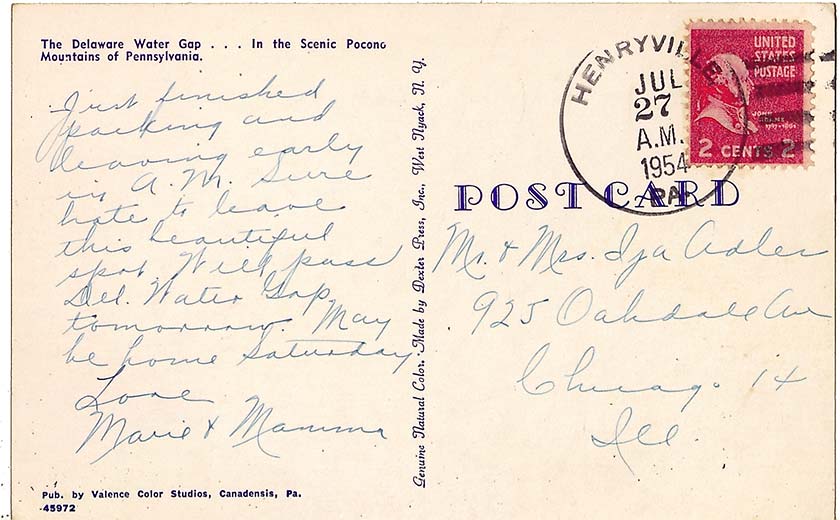 The Delaware Water Gap . . . In the Scenic Pocono
Mountains of Pennsylvania.
Just finished
packing and
leaving early
in A.M. Sure
hate to leave
this beautiful
spot. Will pass
Del. Water Gap
tomorrow. May
be home Saturday.
Love
Marie & Mamma
Pub. by Valence Color Studios, Canadensis, Pa.
45972
Genuine Natural Color. Made by Dexter Press, Inc., West Nyack, N. Y.
HENRYVILLE
JUL
27
A.M.
1954
PA.
UNITED
STATES
POSTAGE
JOHN
ADAMS
1797-1801
2 CENTS 2
POST CARD
Mr. & Mrs. Adler
925 Oakdale Av
Chicago 14
Ill.